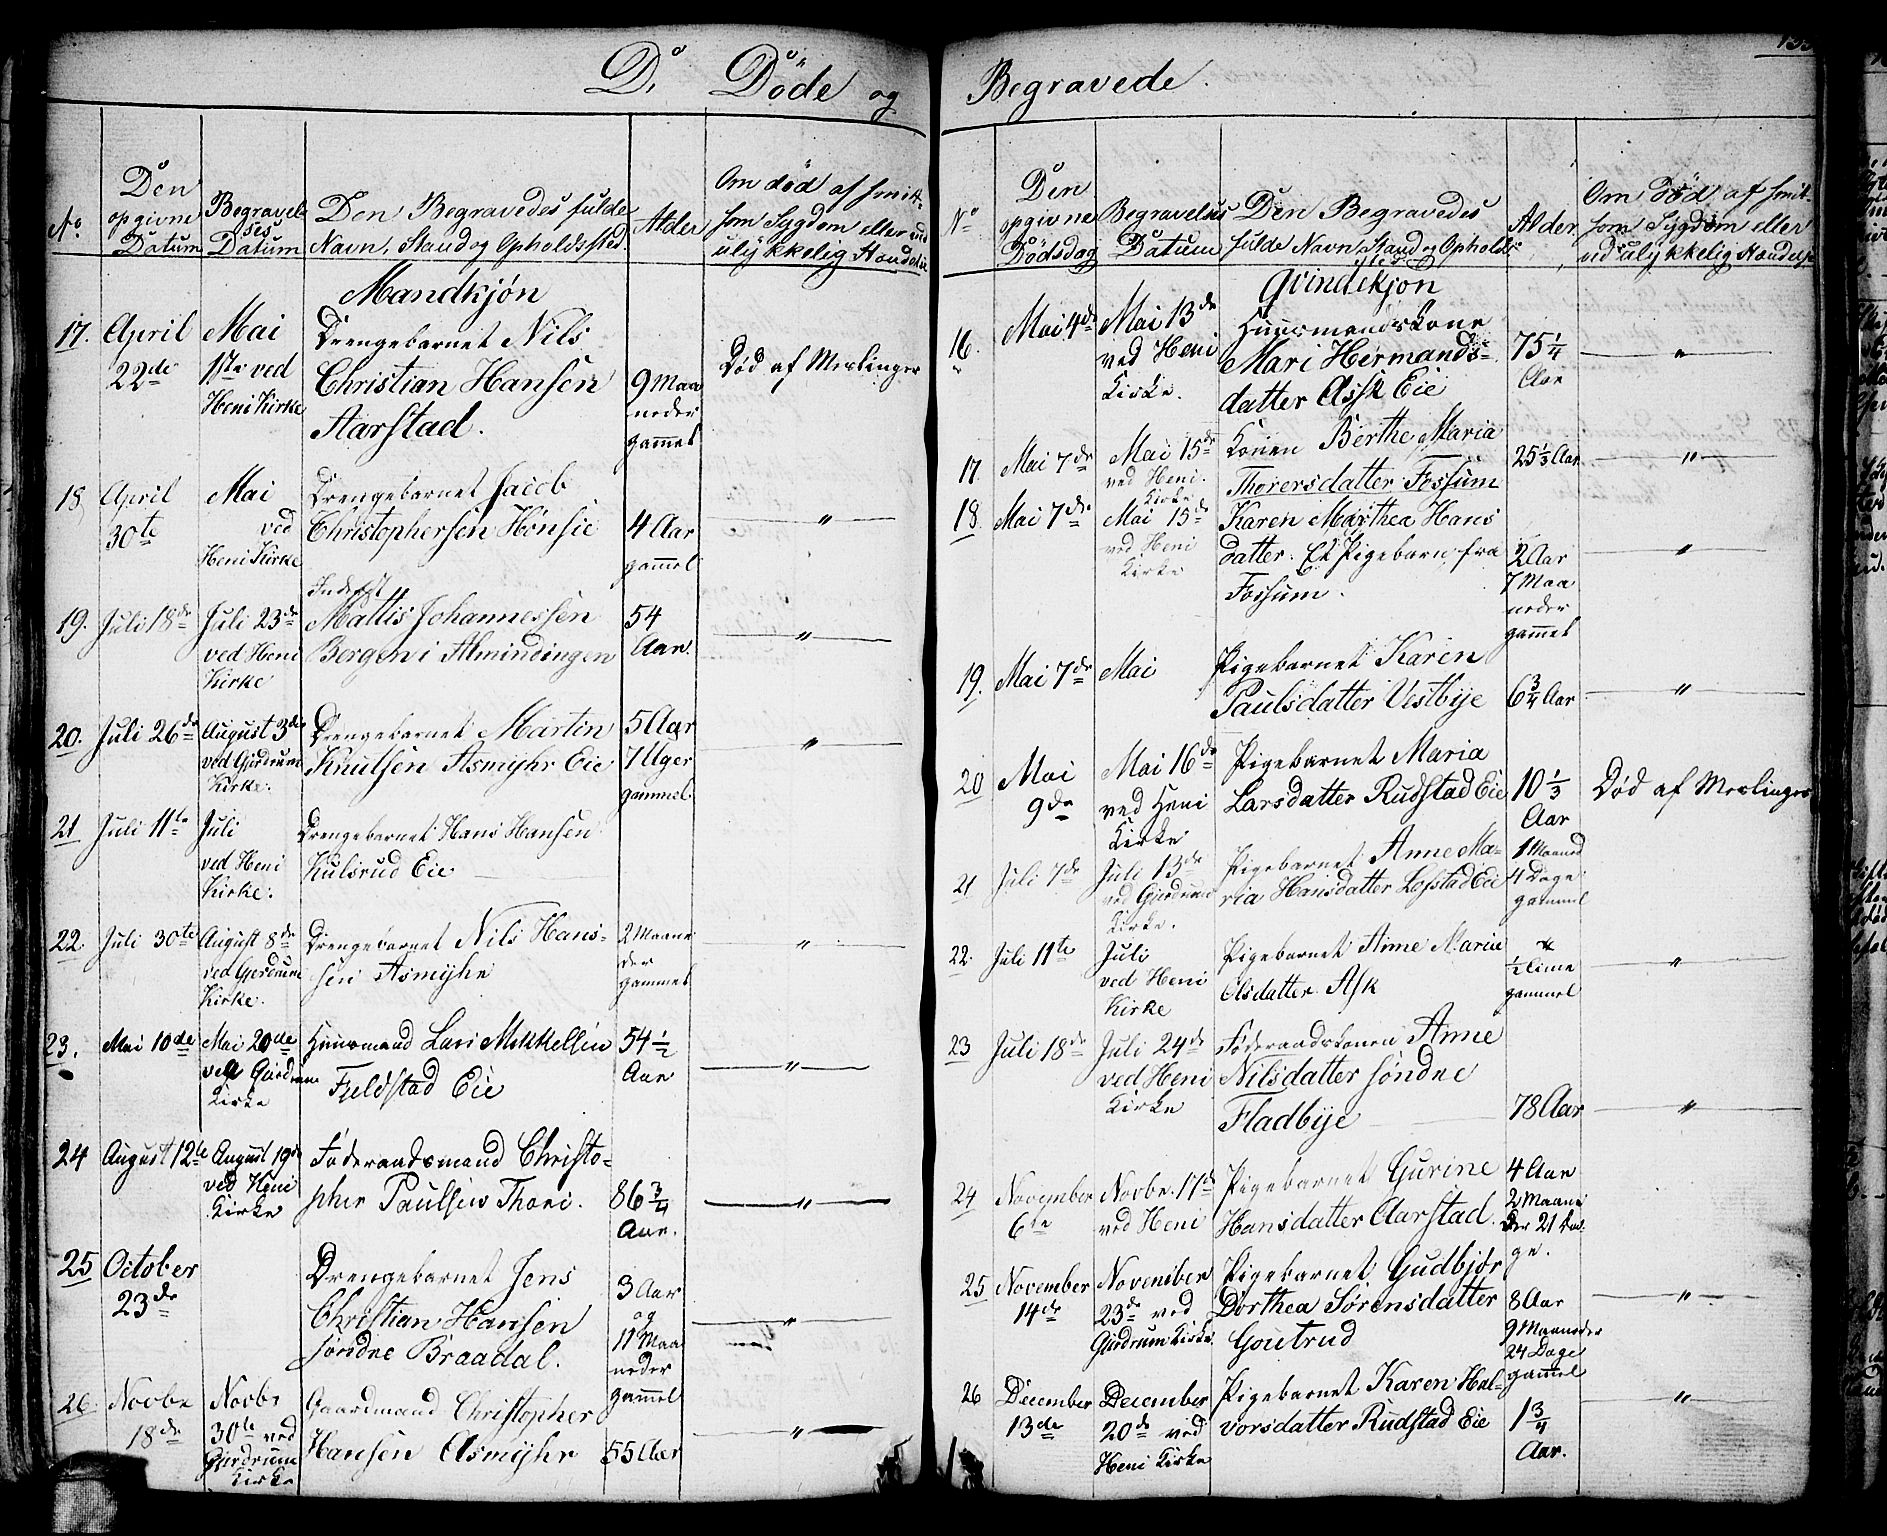 D. Døde og
Den
opgivne
Datum
Begravel-
ses
Datum
Den Begravedes fulde
Navn, Stand og Opholdssted
Alder
Om död af smit-
som Sygdom eller ved
ulykkelig Hændelse
No
Mandkjøn
17. April
22de
Mai
1ste ved
Heni Kirke
Drengebarnet Nils
Christian Hansen
Aarstad.
9 Maa
neder
gammel
Död af Meslinger
18 April
30te
Mai
ved
Heni Kirke
Drengebarnet Jacob
Christophersen Hönsie
4 Aar
gammel
"
19. Juli 18de
Juli 23de
ved Heni
Kirke
Inderst
Mattis Johannessen
Bergen i Almindingen
54
Aar.
"
20. Juli 26de
August 3de
ved Gierdrum
Kirke.
Drengebarnet Martin
Knutsen Asmyhr Eie
5 Aar
7 Uger
gammel.
"
21 Juli 11te
Juli
ved Heni
Kirke.
Drengebarnet Hans Hansen
Kulsrud Eie
22. Juli 30te
August 8de
ved Gerdrum
Kirke.
Drengebarnet Nils Hans-
sen Asmyhr
2 Maane
der
gammel
"
23. Mai 10de
Mai 20de
ved Gierdrum
Kirke
Huusmand Lars Mikkelsen
Fjeldstad Eie
54 1/2
Aar
"
24 August 12te
August 19de
ved Heni
Kirke
Föderaadsmand Christo-
pher Paulsen Thoni.
86 3/4
Aar.
"
25 October
23de
Drengebarnet Jens
Christian Hansen
søndre Braadal.
3 Aar
og
11 Maa
neder
gammel
"
26. Novbr
18de
Novbr
30te ved
Gierdrum
Kirke
Gaardmand Christopher
Hansen Asmyhr
55 Aar
"
Begravede.
No
Den
opgivne
Dödsdag
Begravelses
Datum
Den Begravedes
fulde Navn, Stand og Opholds
Alder
Om Död af smit-
som Sygdom eller
ved ulykkelig Hændelse
Qvindekjøn
16. Mai 4de
Mai 13de
ved Heni
Kirke.
Huusmandskone
Mari Hermands-
datter Assk Eie
75 1/4
Aar
"
17. Mai 7de
Mai 15de
ved Heni.
Kirke
Konen Berthe Maria
Thorersdatter Fossum
25 1/3 Aar
"
18. Mai 7de
Mai 15de
ved Heni
Kirke
Karen Marthea Hans
datter. Et Pigebarn fra
Fossum.
2 Aar
7 Maa
neder
gammel
"
19. Mai 7de
Mai
Pigebarnet Karen
Paulsdatter Vestbye
6 3/4 Aar
"
20 Mai
9de
Mai 16de
ved Heni
Kirke
Pigebarnet Maria
Larsdatter Rudstad Eie
10 1/3
Aar
Död af Meslinger
21 Juli 7de
Juli 13de
ved Gierdrum
Kirke.
Pigebarnet Anne Ma-
ria Hansdatter Løfstad Eie
1 Maaned
4 Dage
gammel
22. Juli 11te
Juli
ved Heni
Kirke
Pigebarnet Anne Marie
Olsdatter. Ask
1/2 Time
gammel
"
23 Juli 18de
Juli 24de
ved Heni
Kirke
Föderaadskonen Anne
Nilsdatter søndre
Fladbye
78 Aar
"
24 November
6te
Novbr. 17de
ved Heni
Pigebarnet Gurine
Hansdatter Aarstad.
4 Aar
2 Maane
der 21 Da-
ge.
25 November
14de
November
23de ved
Gierdrum Kirke.
Pigebarnet Gudbjør
Dorthea Sørensdatter
Goutrud
8 Aar
9 Maaneder
24 Dage
gammel
"
26 December
13de
December
20de ved
Heni Kirke
Pigebarnet Karen Hal-
vorsdatter Rudstad Eie
1 3/4
Aar.
"